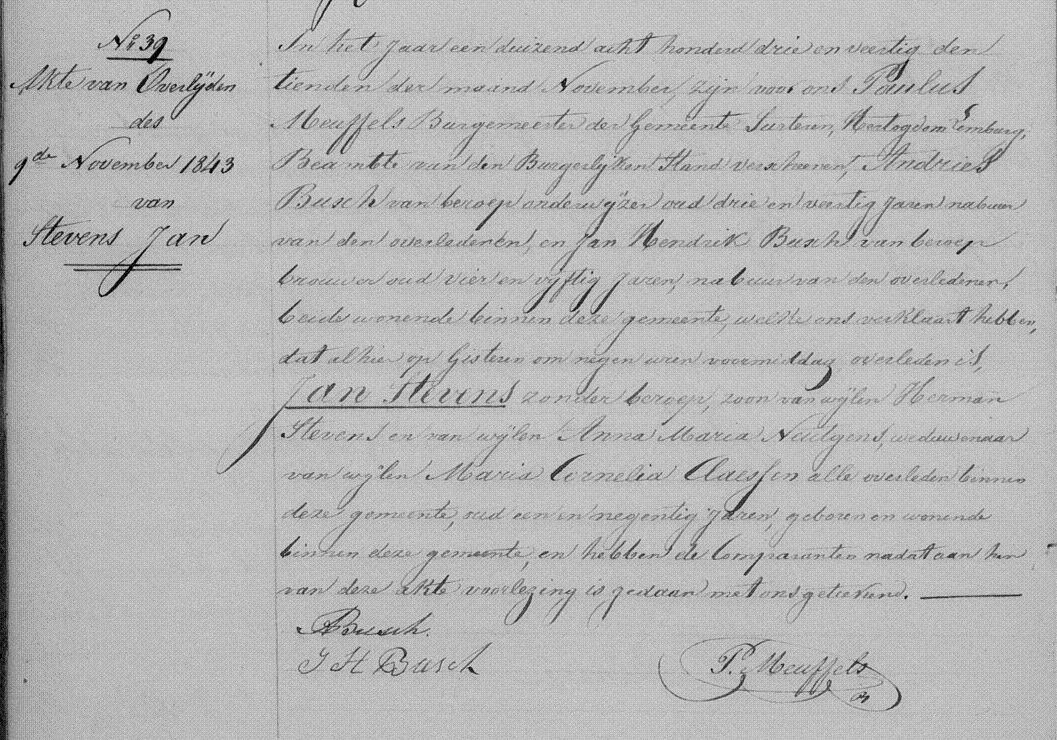 No 39
Akte van Overlijden
des
9de November 1843
van
Stevens Jan
In het Jaar een duizend acht honderd drie en veertig den
tienden der maand November, zijn voor ons Paulus
Meuffels Burgemeester der Gemeente Susteren, Hertogdom Limburg,
Beambte van den Burgerlijken Stand verschenen, Andries
Busch van beroep onderwijzer oud drie en veertig Jaren nabuur
van den overledenen, en Jan Hendrik Busch van beroep
brouwer oud vier en vijftig Jaren, nabuur van den overledenen,
beide wonende binnen deze gemeente, welke ons verklaart hebben,
dat alhier op Gisteren om negen uren voormiddag overleden is,
Jan Stevens zonder beroep, zoon van wijlen Herman
Stevens en van wijlen Anna Maria Nuilgens, weduwenaar
van wijlen Maria Cornelia Claessen alle overleden binnen
deze gemeente, oud een en negentig Jaren, geboren en wonende
binnen deze gemeente, en hebben de Comparanten nadat aan hen
van deze akte voorlezing is gedaan met ons getekend.
ABusch.
J H Busch
P. Meuffels